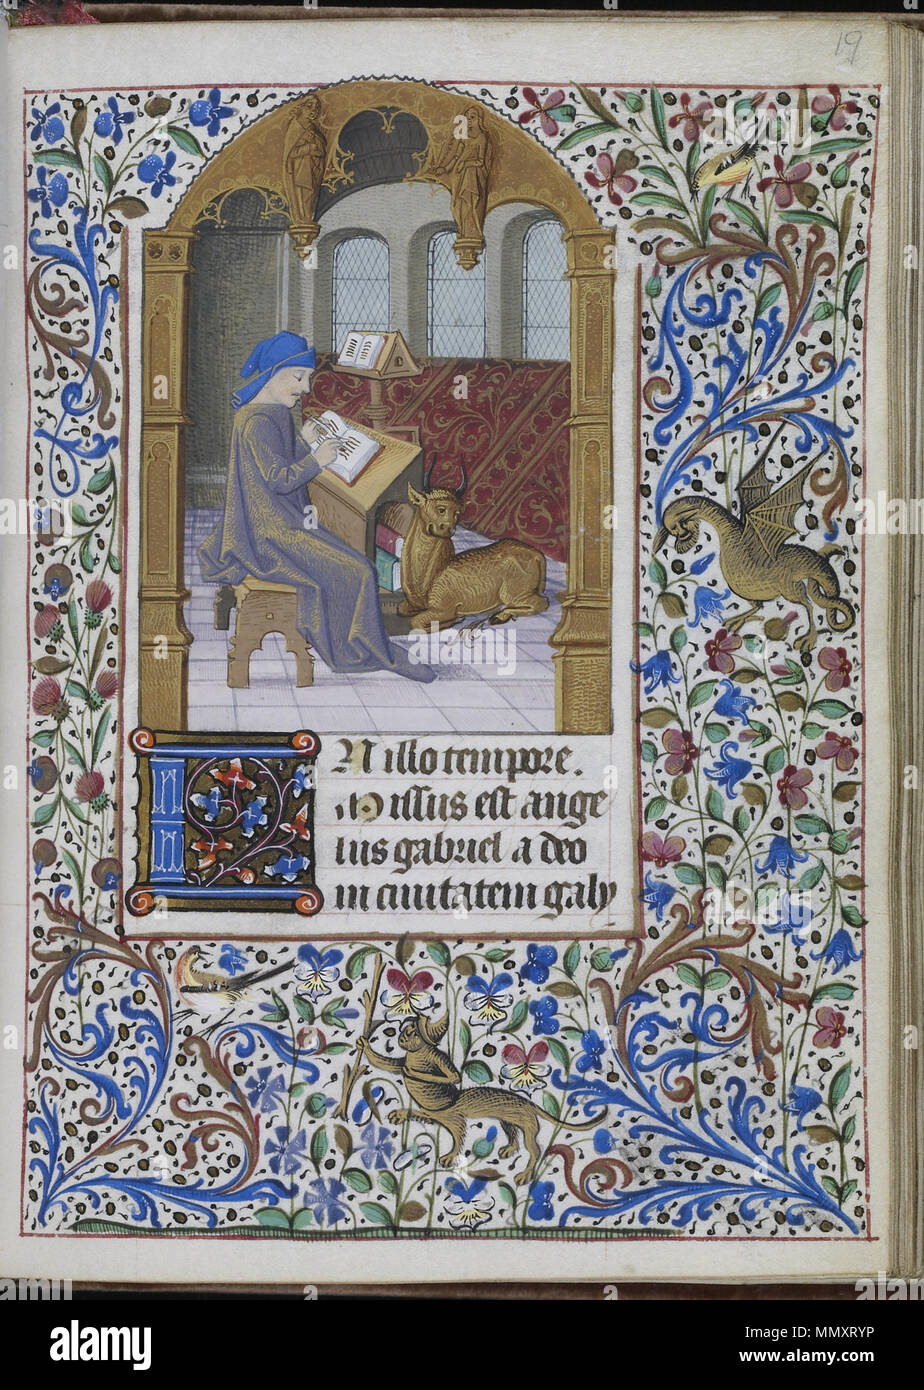 19
IN illo tempore.
Missus est ange
lus gabriel a deo
in ciuitatem galy
alamy
Image ID: MMXRYP
www.alamy.com